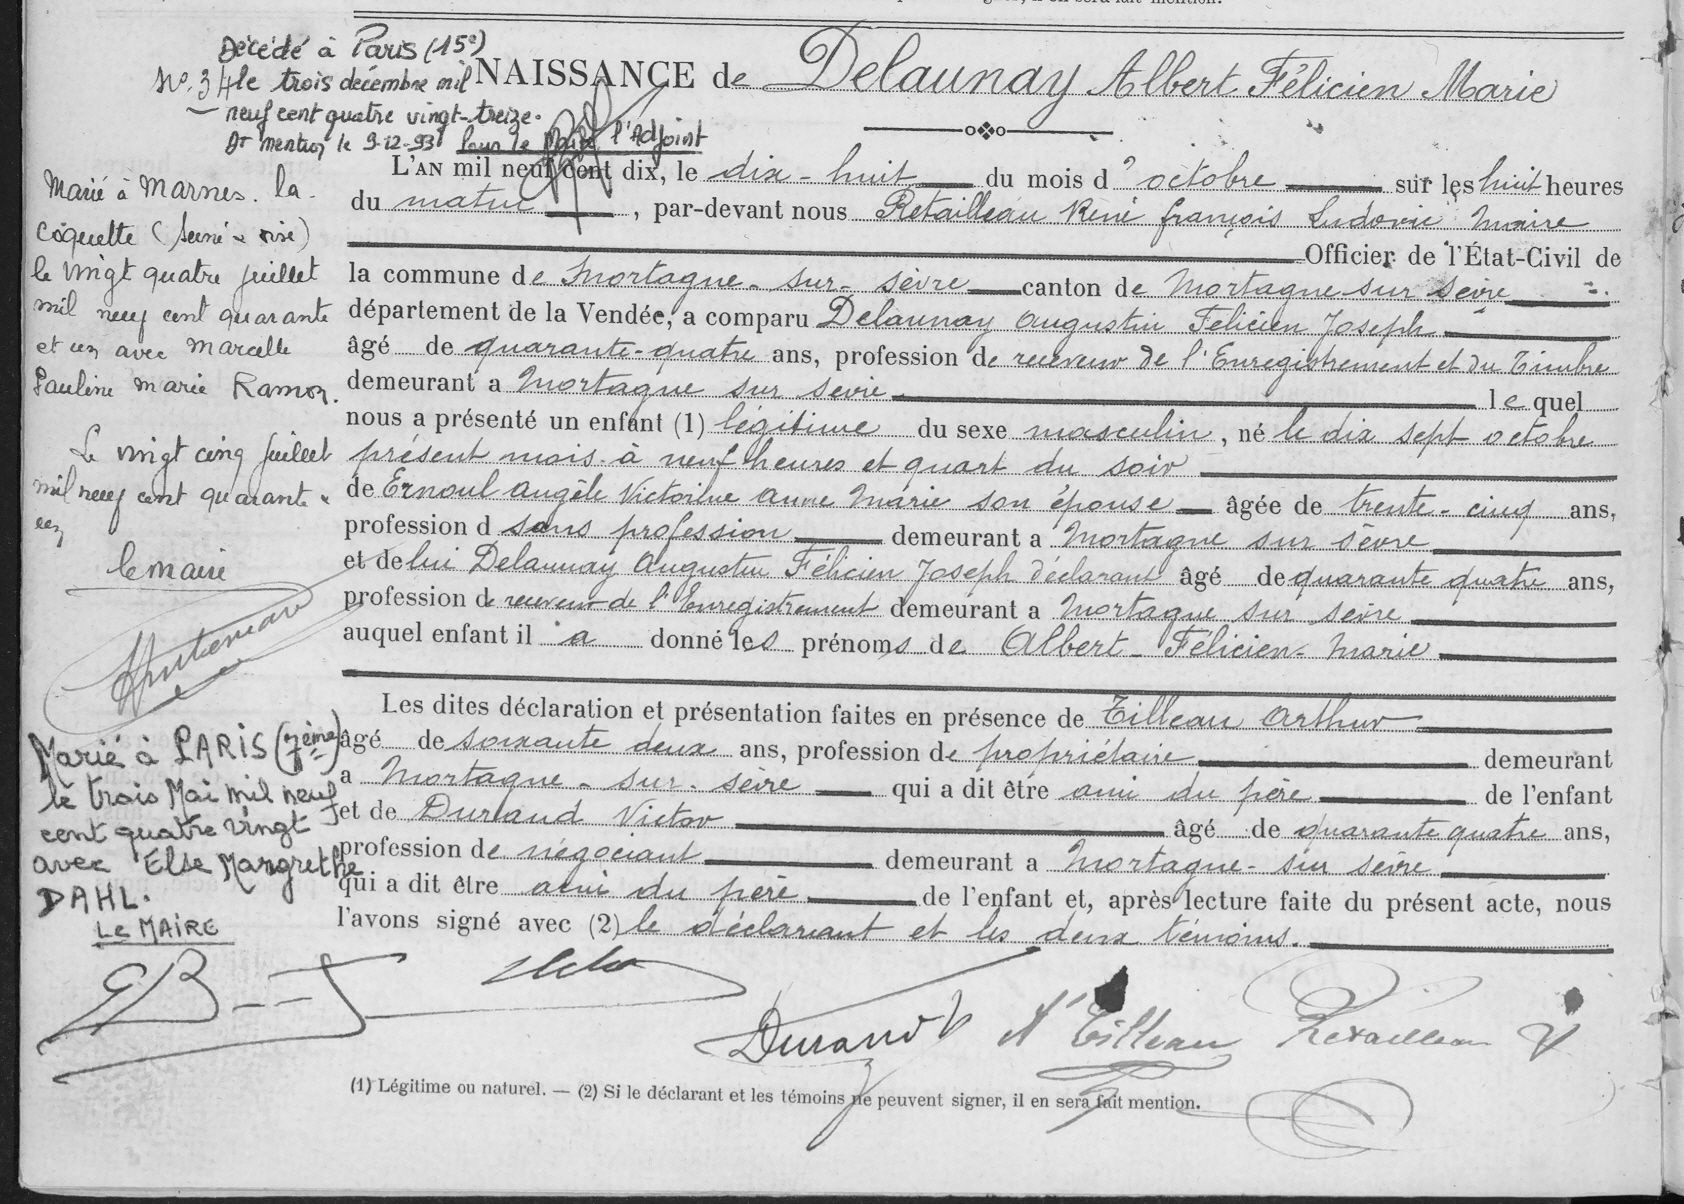 Décédé à Paris (15e)
No. 34 le trois décembre mil
neuf cent quatre vingt-treize.
Dt mention le 9-12-93 Pour le Maire l'Adjoint
NAISSANCE de Delaunay Albert Félicien Marie
L'AN mil neuf cent dix, le dix-huit du mois d'octobre sur les huit heures
du matin, par-devant nous Retailleau René françois Ludovic Maire
Officier de l'État-Civil de
la commune de Mortagne-sur-Sèvre canton de Mortagne sur Sèvre
département de la Vendée, a comparu Delaunay Augustin Félicien Joseph
âgé de quarante-quatre ans, profession de receveur de l'Enregistrement et du Timbre
demeurant a Mortagne sur sevre lequel
nous a présenté un enfant (1) légitime du sexe masculin, né le dix sept octobre
présent mois à neuf heures et quart du soir
de Ernoul Angèle Victorine Anne Marie son épouse âgée de trente-cinq ans,
profession d sans profession demeurant a Mortagne sur sèvre
et de lui Delaunay Augustin Félicien Joseph déclarant âgé de quarante quatre ans,
profession de receveur de l'Enregistrement demeurant a Mortagne sur sèvre
auquel enfant il a donné les prénoms de Albert-Félicien-Marie
Les dites déclaration et présentation faites en présence de Tilleau Arthur
âgé de soixante deux ans, profession de propriétaire demeurant
a Mortagne-sur-sèvre qui a dit être ami du père de l'enfant
et de Durand Victor âgé de quarante quatre ans,
profession de négociant demeurant a Mortagne-sur sèvre
qui a dit être ami du père de l'enfant et, après lecture faite du présent acte, nous
l'avons signé avec (2) le déclarant et les deux témoins.
Marié à Marnes-la-
Coquette (Seine & oise)
le vingt quatre juillet
mil neuf cent quarante
et un avec Marcelle
Pauline Marie Ramon.
Le vingt cinq juillet
mil neuf cent quarante &
un
le maire
Marié à PARIS (7ème)
le trois Mai mil neuf
cent quatre vingt
avec Else Margrethe
DAHL.
LE MAIRE
Durand V A Tilleau Retailleau
(1) Légitime ou naturel. — (2) Si le déclarant et les témoins ne peuvent signer, il en sera fait mention.